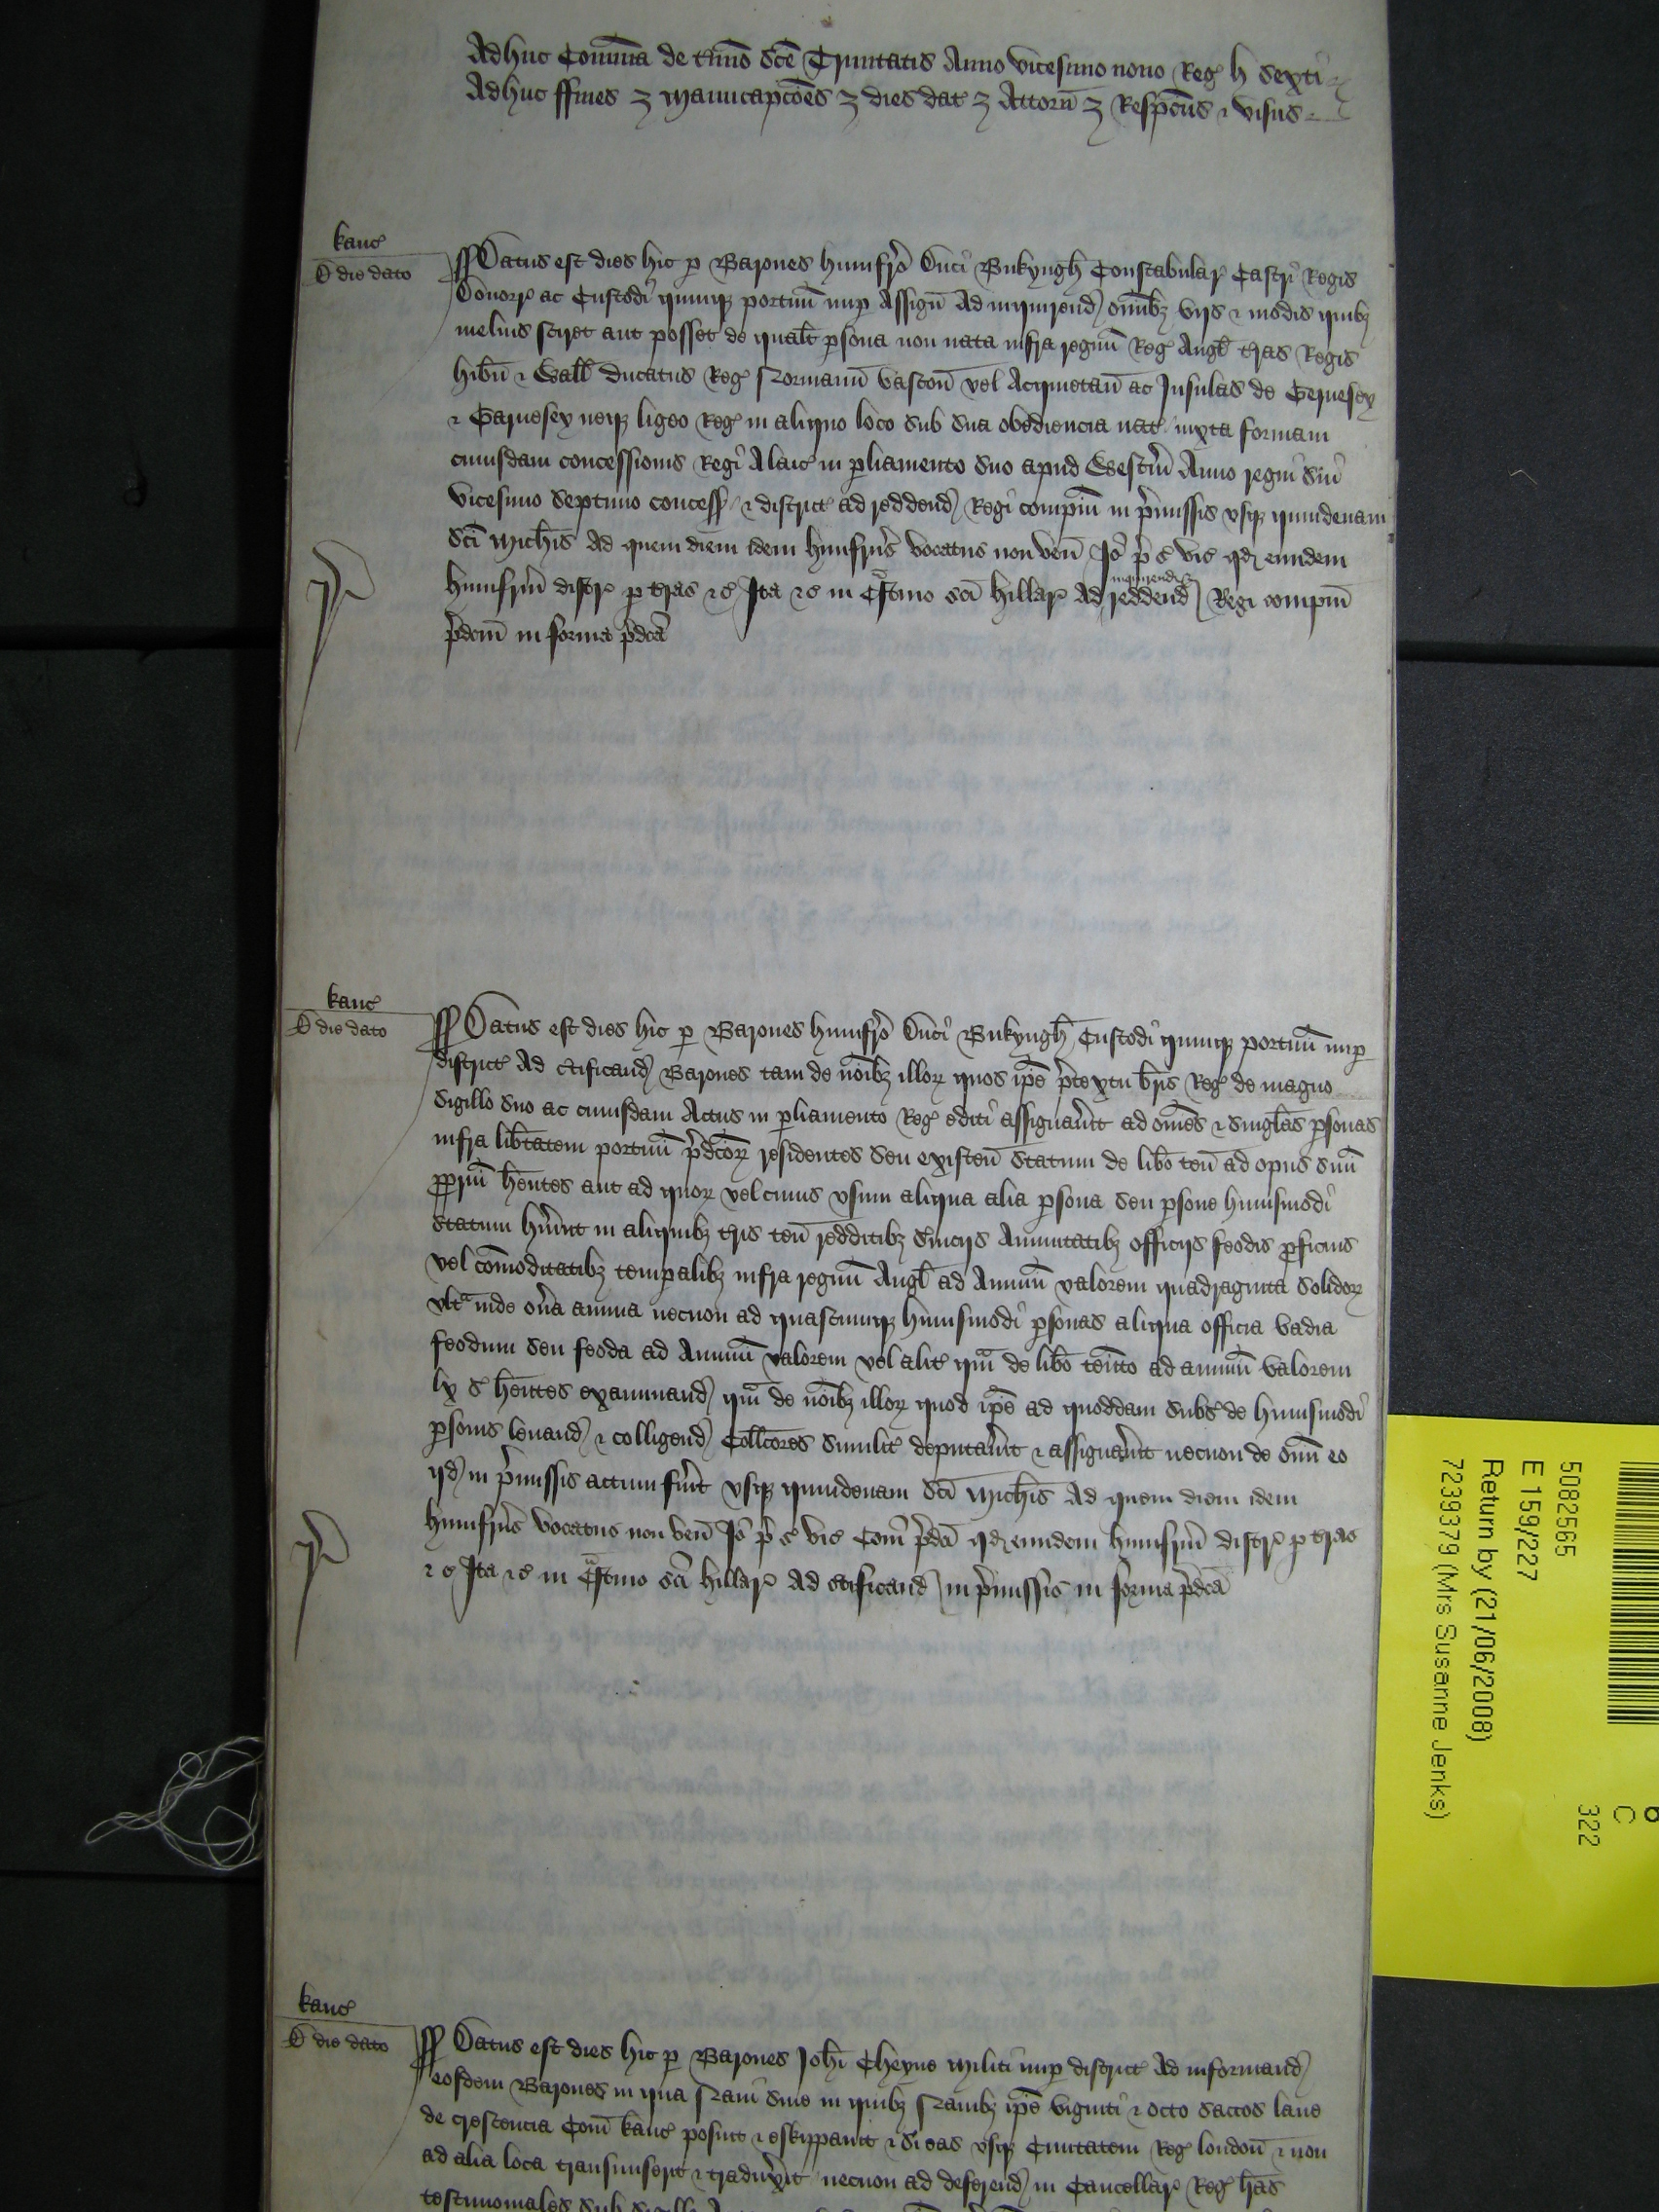 Adhuc Com̄ia de t̄mīo sc̄e Trinitatis Anno vicesimo nono Reḡ h sexti
Adhuc ffines ꝫ Manucapc̄ōes ꝫ dies dat̄ ꝫ Attorn̄ ꝫ Respc̄us ⁊ visus
kanc̄
D̄ die dato
Datus est dies hic ꝑ Barones humfr̄o Duci Bukyngh̄ Constabular̄ Castri Regis
Douorr̄ ac Custodi quinqꝫ portuū nuꝑ Assign̄ Ad inquirend̄ om̄ibꝫ vijs ⁊ modis quibꝫ
melius sciret aut posset de qualt̄ ꝑsona non nata infra regnū Reḡ Angl̄ t̄ras Regis
hib̄n ⁊ Wall̄ ducatus Reḡ Normann̄ vascon̄ vel Acquietan̄ ac Insulas de Gernesey
⁊ Garnesey neqꝫ ligeo Reḡ in aliquo loco sub sua obediencia nat̄ iuxta formam
cuiusdam concessionis Regi A laic̄ in ꝑliamento suo apud Westm̄ Anno regni sui
vicesimo septimo concess̄ ⁊ district̄ ad reddend̄ Regi compm̄ in p̄missis vsqꝫ quindenam
sc̄i Mich̄is Ad quem diem idem humfr̄us vocatus non ven̄ Iō p̄ c̄ vic̄ qd̄ eundem
humfrm̄ distr̄ ꝑ t̄ras ⁊c̄ Ita ⁊c̄ in Cr̄stino sc̄i hillar̄ Ad inquirend̄ ⁊ reddend̄ Regi compm̄
p̄dcm̄ in forma p̄dc̄a
kanc̄
D̄ die dato
Datus est dies hic ꝑ Barones humfr̄o Duci Bukyngh̄ Custodi quinqꝫ portuū nuꝑ
district̄ Ad c̄tificand̄ Barones tam de nōibꝫ illorꝫ quos ip̄e p̄textu br̄is Reḡ de magno
Sigillo suo ac cuiusdam Actus in ꝑliamento Reḡ editi assignau̅it ad om̄es ⁊ singl̄as ꝑsonas
infra lib̄tatem portuū p̄dc̄orꝫ residentes seu existen̄ statum de lib̄o ten̄ ad opus suū
ꝓpriū h̄entes aut ad quorꝫ vel cuius vsum aliqua alia ꝑsona seu ꝑsone huiusmodi
statum hu̅int in aliquibꝫ t̄ris ten̄ redditibꝫ s̄uicijs Annuitatibꝫ officijs feodis ꝓficuis
vel com̄oditatibꝫ temꝑalibꝫ infra regnū Angl̄ ad Annuū valorem quadraginta solidorꝫ
vlt̄ᵃ inde on̄a annua necnon ad quascumqꝫ huiusmodi ꝑsonas aliqua officia vadia
feodum seu feoda ad Annuū valorem vel alit̄ qm̄ de lib̄o ten̄to ad annuū valorem
lx s̄ h̄entes examinand̄ qm̄ de nōibꝫ illorꝫ quod ip̄e ad quoddam subs̄ de huiusmodi
ꝑsonis leuand̄ ⁊ colligend̄ Coll̄cores similit̄ deputau̅it ⁊ assignau̅it necnon de om̄i eo
qd̄ in p̄missis actum fu̅it vsqꝫ quindenam Sc̄i Mich̄is Ad quem diem idem
humfr̄us vocatus non ven̄ Iō p̄ c̄ vic̄ Com̄ p̄dc̄i qd̄ eundem humfrm̄ distr̄ ꝑ t̄ras
⁊c̄ Ita ⁊c̄ in Cr̄stino sc̄i hillar̄ Ad c̄tificand̄ in p̄missis in forma p̄dc̄a
kanc̄
D̄ die dato
Datus est dies hic ꝑ Barones Joh̄i Cheyne Militi nuꝑ district̄ Ad informand̄
eosdem Barones in qua Naui siue in quibꝫ Nauibꝫ ip̄e viginti ⁊ octo saccos lane
de crescencia Com̄ kanc̄ posuit ⁊ eskippauit ⁊ si eas vsqꝫ Ciuitatem Reḡ london̄ ⁊ non
ad alia loca transmiserit ⁊ traduxerit necnon ad deferend̄ in Cancellar̄ Reḡ lr̄as
testimoniales sub sigillo
5082565
E 159/227
Return by (21/06/2008)
7239379 (Mrs Susanne Jenks)
C
322